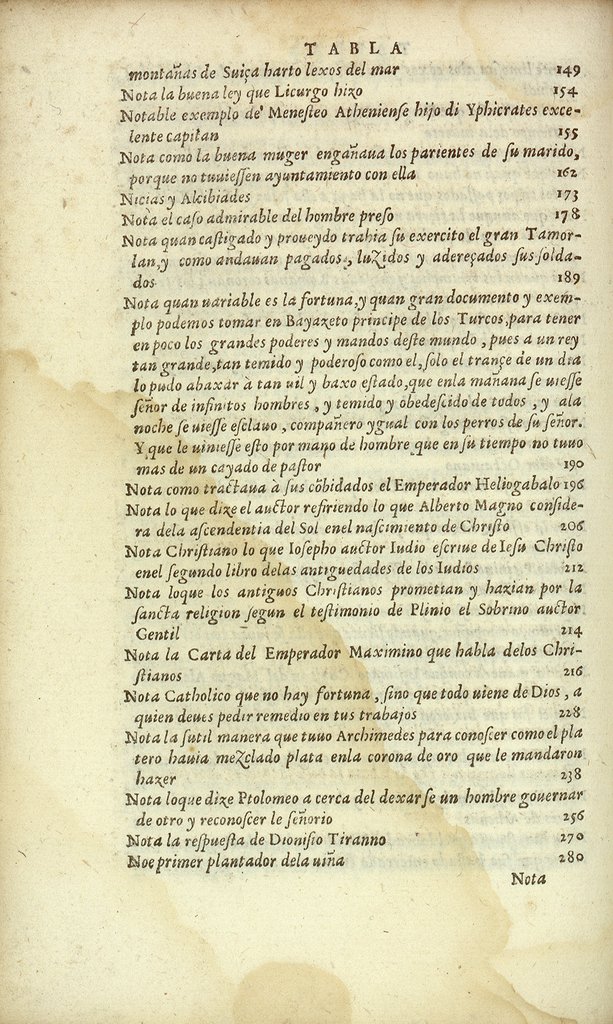 TABLA
montañas de Suiça harto lexos del mar 149
Nota la buena ley que Licurgo hizo 154
Notable exemplo de' Menesteo Atheniense hijo di Yphicrates exce-
lente capitan 155
Nota como la buena muger engañaua los parientes de su marido,
porque no tuuiessen ayuntamiento con ella 162
Nicias y Alcibiades 173
Nota el caso admirable del hombre preso 178
Nota quan castigado y proueydo trahia su exercito el gran Tamor-
lan, y como andauan pagados, luzidos y adereçados sus solda-
dos 189
Nota quan uariable es la fortuna, y quan gran documento y exem-
plo podemos tomar en Bayazeto principe de los Turcos, para tener
en poco los grandes poderes y mandos deste mundo, pues a un rey
tan grande, tan temido y poderoso como el, solo el trançe de un dia
lo pudo abaxar à tan uil y baxo estado, que enla mañana se uiesse
señor de infinitos hombres, y temido y obedescido de todos, y ala
noche se uiesse esclauo, compañero ygual con los perros de su señor.
Y que le uiniesse esto por mano de hombre que en su tiempo no tuuo
mas de un cayado de pastor 190
Nota como tractaua à sus cõbidados el Emperador Heliogabalo 196
Nota lo que dize el auctor refiriendo lo que Alberto Magno conside-
ra dela ascendentia del Sol enel nascimiento de Christo 206
Nota Christiano lo que Iosepho auctor Iudio escriue de Iesu Christo
enel segundo libro delas antiguedades de los Iudios 212
Nota loque los antiguos Christianos prometian y hazian por la
sancta religion segun el testimonio de Plinio el Sobrino auctor
Gentil 214
Nota la Carta del Emperador Maximino que habla delos Chri-
stianos 216
Nota Catholico que no hay fortuna, sino que todo uiene de Dios, a
quien deues pedir remedio en tus trabajos 228
Nota la sutil manera que tuuo Archimedes para conoscer como el pla
tero hauia mezclado plata enla corona de oro que le mandaron
hazer 238
Nota loque dize Ptolomeo a cerca del dexarse un hombre gouernar
de otro y reconoscer le señorio 256
Nota la respuesta de Dionisio Tiranno 270
Noe primer plantador dela uiña 280
Nota